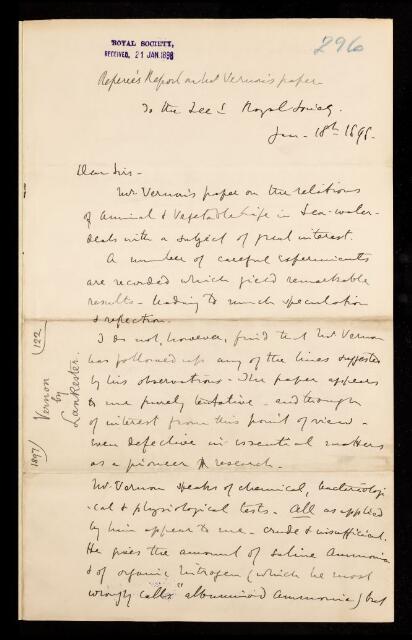 ROYAL SOCIETY,
RECEIVED, 21 JAN. 1898
296
Referee's Report on Mr Vernon's paper -
To the Sec. Royal Society.
Jan - 18th 1898.
Dear Sirs -
Mr. Vernon's paper on the relations
of animal & vegetable life in Sea-water -
deals with a subject of great interest.
A number of careful experiments
are recorded which yield remarkable
results - leading to much speculation
& reflection.
I do not, however, find that Mr Vernon
has followed up any of the lines suggested
by his observations - The paper appears
to me purely tentative - and though
of interest from this point of view -
even defective in essential matters
as a pioneer research -
Mr. Vernon speaks of chemical, bacteriologi
-cal & physiological tests - All as applied
by him appear to me - crude & insufficient.
He gives the amount of saline Ammonia
& of organic nitrogen (which he most
wrongly calls "albuminoid Ammonia) but
1897/ Vernon (122
by
Lankester.